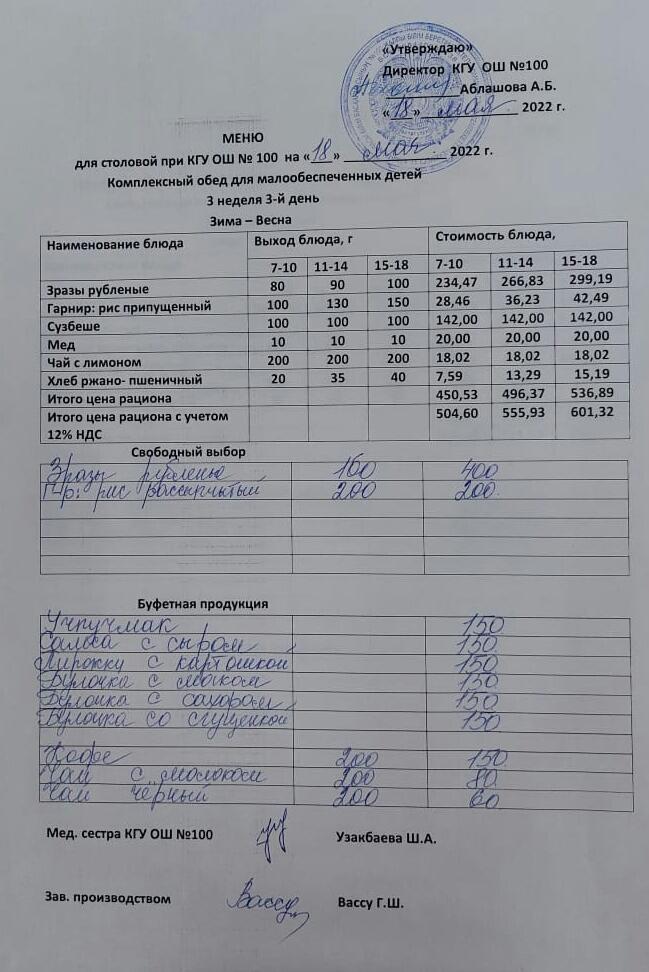 «Утверждаю»
Директор КГУ ОШ №100
Аблашова А.Б.
«18» мая 2022 г.
МЕНЮ
для столовой при КГУ ОШ № 100 на «18» мая 2022 г.
Комплексный обед для малообеспеченных детей
3 неделя 3-й день
Зима – Весна
Наименование блюда Выход блюда, г Стоимость блюда,
7-10 11-14 15-18 7-10 11-14 15-18
Зразы рубленые 80 90 100 234,47 266,83 299,19
Гарнир: рис припущенный 100 130 150 28,46 36,23 42,49
Сузбеше 100 100 100 142,00 142,00 142,00
Мед 10 10 10 20,00 20,00 20,00
Чай с лимоном 200 200 200 18,02 18,02 18,02
Хлеб ржано- пшеничный 20 35 40 7,59 13,29 15,19
Итого цена рациона 450,53 496,37 536,89
Итого цена рациона с учетом 504,60 555,93 601,32
12% НДС
Свободный выбор
Зразы рубленые 100 400
Г-р: рис рассыпчатый 200 200
Буфетная продукция
Учпучмак 150
Самса с сыром 150
Пирожки с картошкой 150
Булочка с маком 150
Булочка с сахаром 150
Булочка со сгущенкой 150
Кофе 200 150
Чай с молоком 200 80
Чай черный 200 60
Мед. сестра КГУ ОШ №100 Узакбаева Ш.А.
Зав. производством Вассу Вассу Г.Ш.